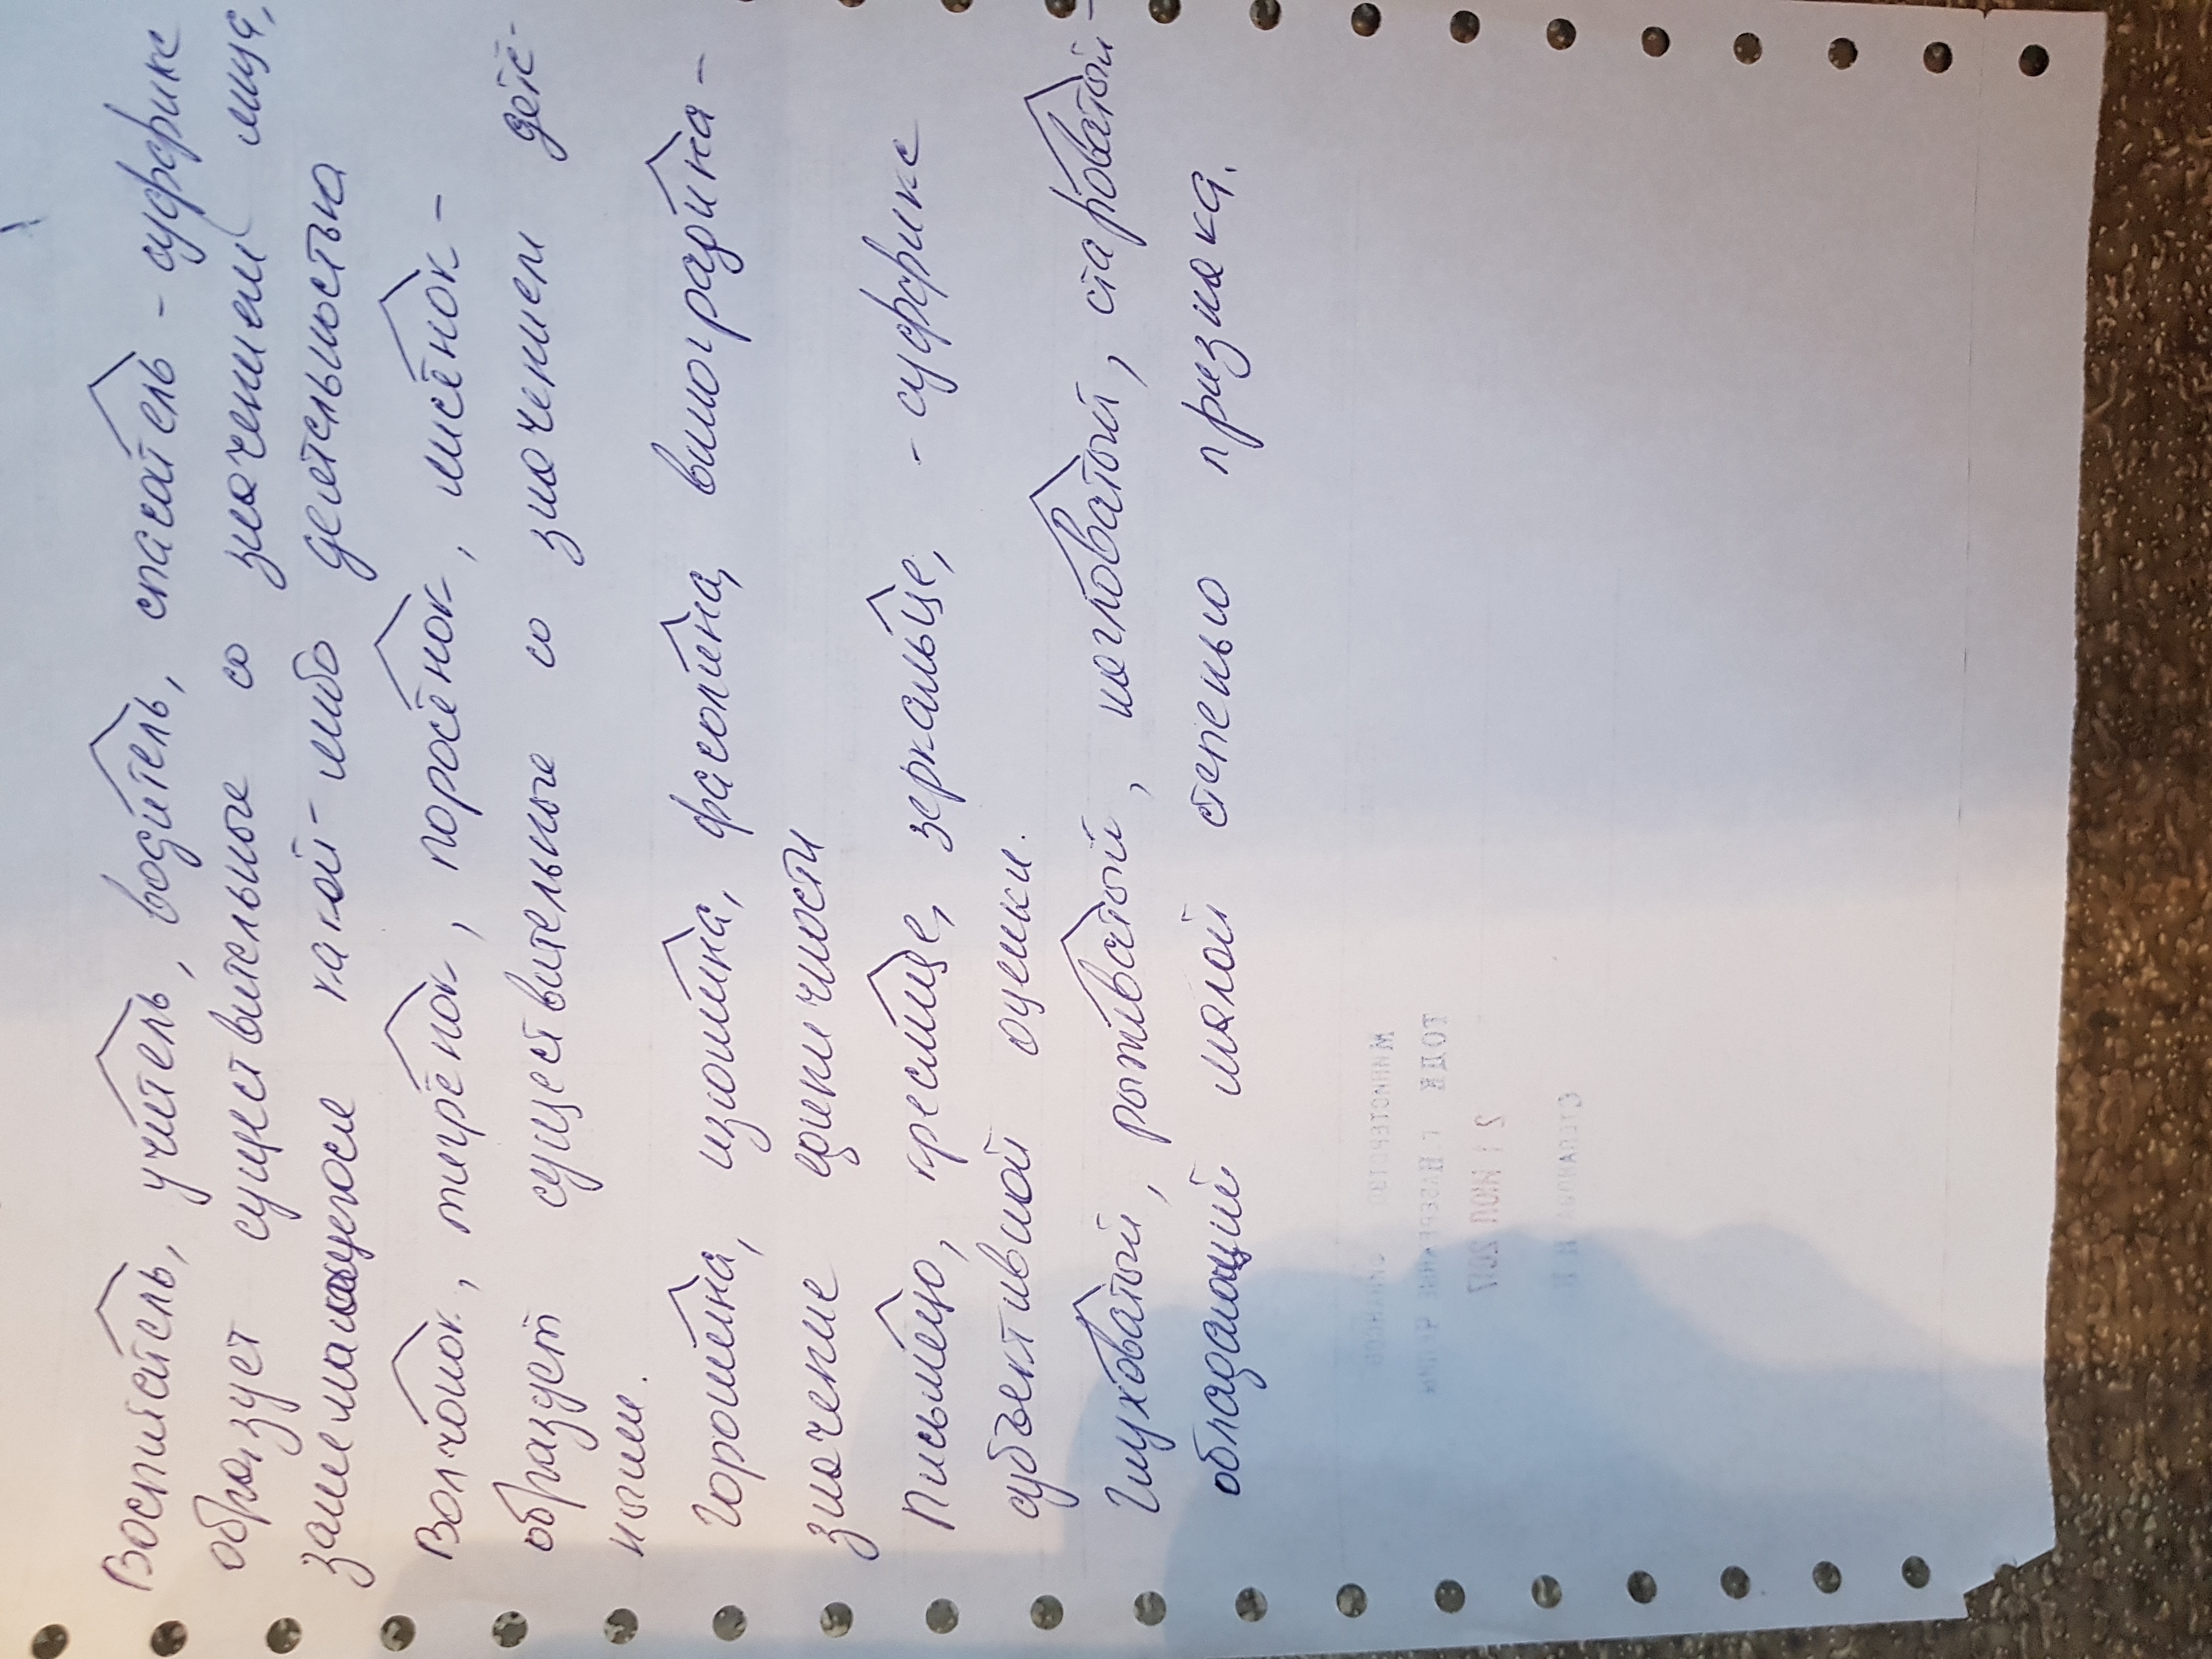 Воспитатель, учитель, водитель, спасатель - суффикс
образует существительные со значением лица,
занимающегося какой-либо деятельностью
Волчонок, тигрёнок, поросёнок, лисёнок -
образует существительные со значением детё-
ныш.
Горошина, изюмина, фасолина, виноградина -
значение единичности
Письмецо, креслице, зеркальце, - суффикс
субъективной оценки.
Глуховатый, рыжеватый, нагловатый, староватый -
обладающий малой степенью признака.
МИНИСТЕРСТВО ФИНАНСОВ
ТОДК Г НАБЕРЕЖНЫЕ ЧЕЛНЫ
21 ИЮЛ 2017
СТЕПАНОВА Н